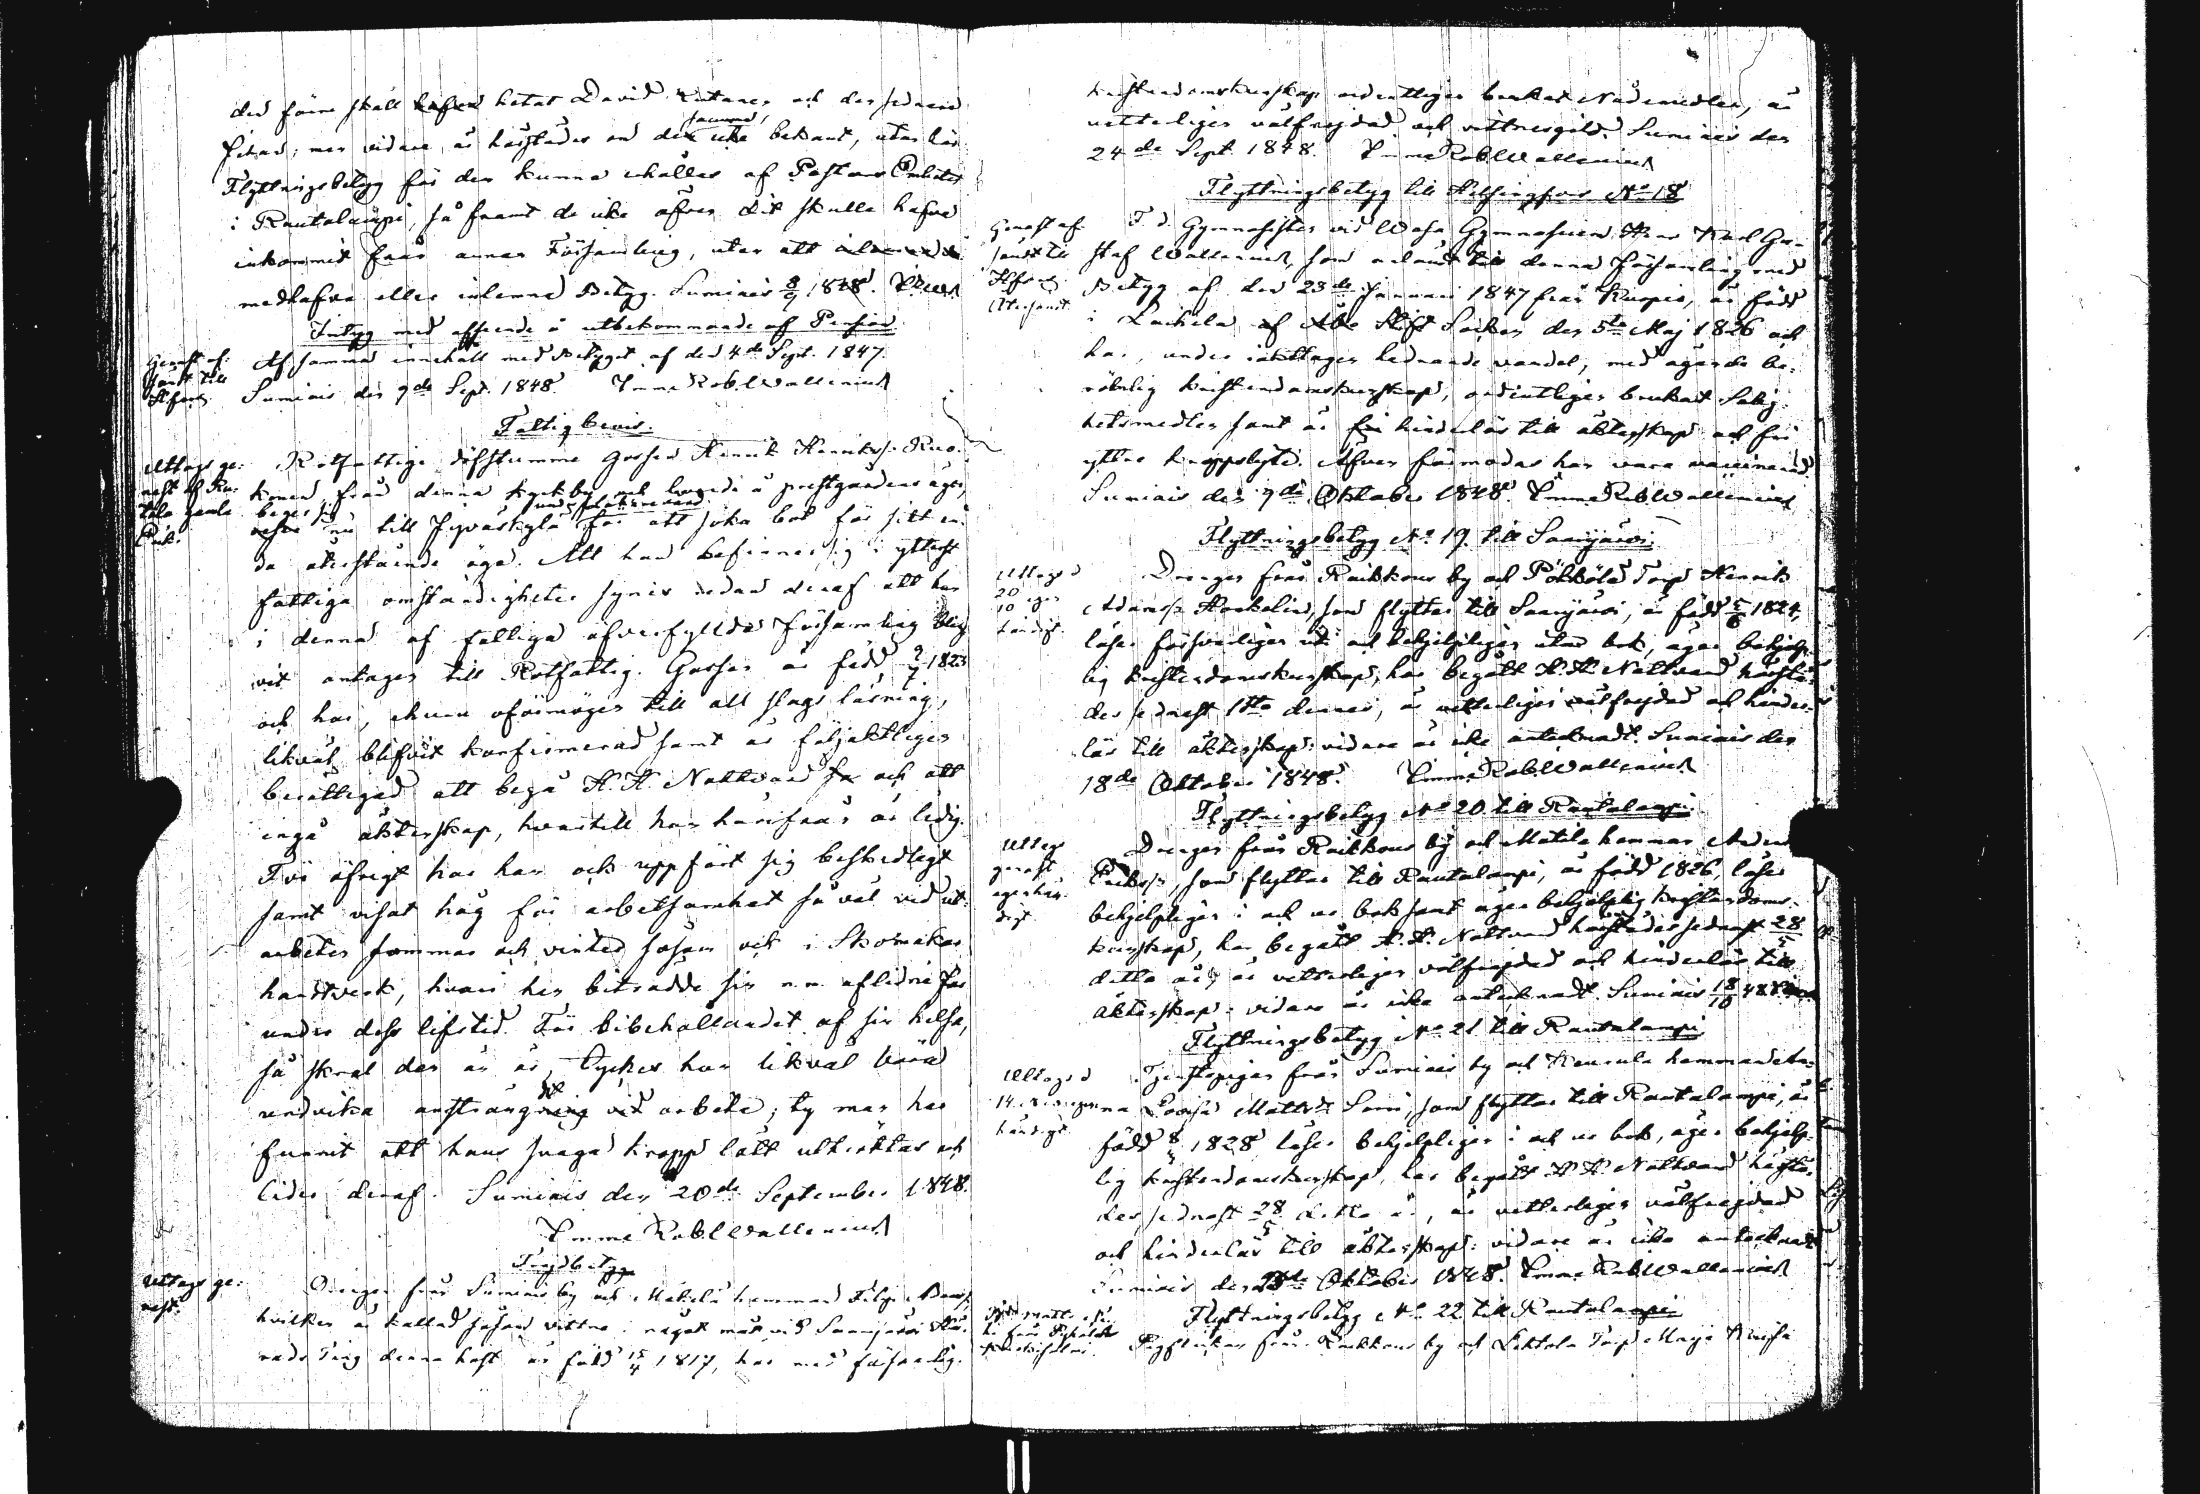 den förra skall hetat David och den sednare
samma,
men vidare är härstädes om dem icke bekant, utan lär
Flyttningsbetyg för dem kunna erhållas af Pastors Embetet
i Rautalampi, så framt de icke äfven dit skulle hafva
inkommit från annan Församling, utan att
medhafva eller inlemna Betyg. Sumiais 8/9 1848.
Intyg med afseende å utbekommande af Pension.
Genast af-
sändt till
Hfors
Af samma innehåll med Betyget af den 4de Sept. 1847.
Sumiais den 9de Sept. 1848. Emme Rob. Wallenius
Fattigbevis.
Uttogs ge-
nast af
gamle
Rotfattige döfstumme Gossen Henrik Henrikss. Ruo-
konen från denna kyrkby och boende å prestgårdens ägor,
beger sig
nu till Jyväskylä för att söka bot för sitt en-
da återstående öga. Att han befinner sig i ytterst
fattiga omständigheter synes redan deraf att han
i denna af fattiga öfverfyllda Församling blif-
vit antagen till Rotfattig. Gossen är född 2/7 1823
och har, ehuru oförmögen till all slags läsning,
likväl blifvit konfirmerad samt är följaktligen
berättigad att begå H. H. Nattvard och att
ingå äktenskap, hvartill han härifrån är ledig.
För öfrigt har han ock uppfört sig beskedligt
samt visat håg för arbetsamhet så väl vid ut-
arbeten sommar och vinter såsom ock i Skomakar
handtverk, hvari han biträdde sin nu aflidne far
under dess lifstid. För bibehållandet af sin helsa,
så skral den än är, tyckes han likväl böra
undvika ansträngdt arbete; ty man har
funnit att hans svaga kropp lätt uttröttas och
lider deraf. Sumiais den 20de September 1848.
Emme Rob. Wallenius
Frejdbetyg
Uttogs ge-
nast.
Drengen från Sumiais by och Mäkelä hemman Filip
hvilken är kallad såsom vittne i något mål vid Saarijärvi Hä-
rads Ting denna höst är född 15/4 1817, har med försvarlig
kristendomskunskap ordentligen brukat Nådemedlen, är
vetterligen välfrejdad och vittnesgild. Sumiais den
24de Sept. 1848. Emme Rob Wallenius
Flyttningsbetyg till Helsingfors No 18
Genast af-
sändt till
Hfors
Återsändt
F. d. Gymnasisten vid Wasa Gymnasium Herr Karl Gu-
staf Wallenius, som anländt till denna församling med
Betyg af den 23de Januari 1847 från Kuopio, är född
i Laihela Socken den 5te Maj 1826 och
har, under iakttagen hedrande vandel, med ägande be-
römlig kristendomskunskap, ordentligen brukat Salig-
hetsmedlen samt är fri hinderlös till äktenskap och fri
yttre kroppslyte. Äfven förmodas han vara vaccinerad.
Sumiais den 9de Oktober 1848. Emme Rob Wallenius
Flyttningsbetyg No 19. till Saarijärvi.
Uttogs d
20 egen
10
händigt.
Drengen från Raikkous by och Pökkölä Torp Henrik
Adamss. som flyttar till Saarijärvi, är född 5/6 1824,
läser försvarligen uti och behjelpligen utan bok, äger behjelp-
lig kristendomskunskap, har begått H. H. Nattvard härstä-
des sednast 1sta dennes, är vetterligen välfrejdad och hinder-
lös till äktenskap: vidare är icke antecknadt. Sumiais den
18de Oktober 1848. Emme Rob. Wallenius
Flyttningsbetyg No 20 till Rautalampi
Uttogs
genast
egenhän-
digt
Drengen från Raikkous by och Mattila hemman
Erikss., som flyttar till Rautalampi, är född 1826, läser
behjelpligen i och ur bok samt äger behjelplig kristendoms-
kunskap, har begått H. H. Nattvard härstädes sednast 28/5
detta år, är vetterligen välfrejdad och hinderlös till
äktenskap: vidare är icke antecknadt. Sumiais 18/10 48
Flyttningsbetyg No 21 till Rautalampi
Uttogs d
14 egen-
händigt
Tjenstepigan från Sumiais by och hemman
Lovisa Mattsdr som flyttar till Rautalampi, är
född 1828 läser behjelpligen i och ur bok, äger behjelp-
lig kristendomskunskap, har begått H. H. Nattvard härstä-
des sednast 28/5 detta år, är vetterligen välfrejdad
och hinderlös till äktenskap: vidare är icke antecknadt
Sumiais den Oktober 1848. Emme Rob Wallenius
Flyttningsbetyg No 22 till Rautalampi
Pigflickan från Raikkous by och Torp Maja